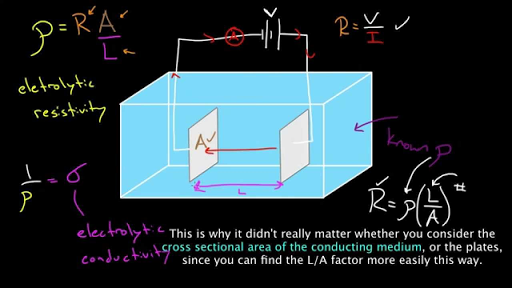 ρ = R A / L
V
A
R = V / I ✓
eletrolytic
resistivity
A ✓
L
known ρ
1 / ρ = σ
R = ρ (L / A)
electrolytic
conductivity
This is why it didn't really matter whether you consider the
cross sectional area of the conducting medium, or the plates,
since you can find the L/A factor more easily this way.